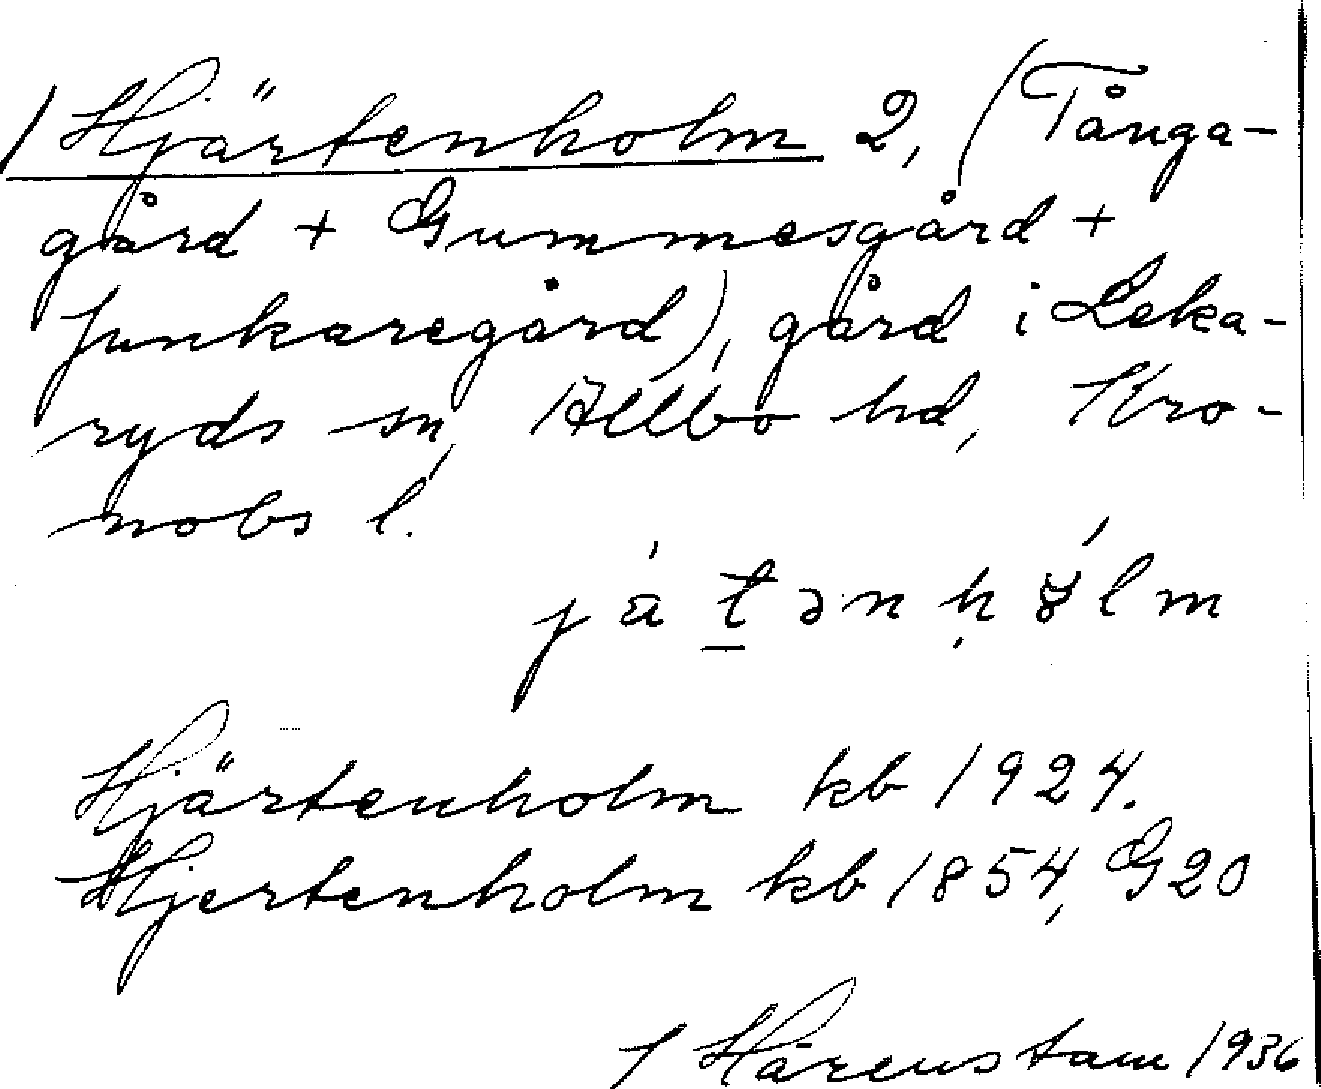 / Hjärtenholm 2, (Tånga-
gård + Gummesgård +
Junkaregård), gård i Leka-
ryds sn, Allbo hd, Kro-
nobs l.
Hjärtenholm kb 1924.
Hjertenholm kb 1854, G20
Härenstam 1936